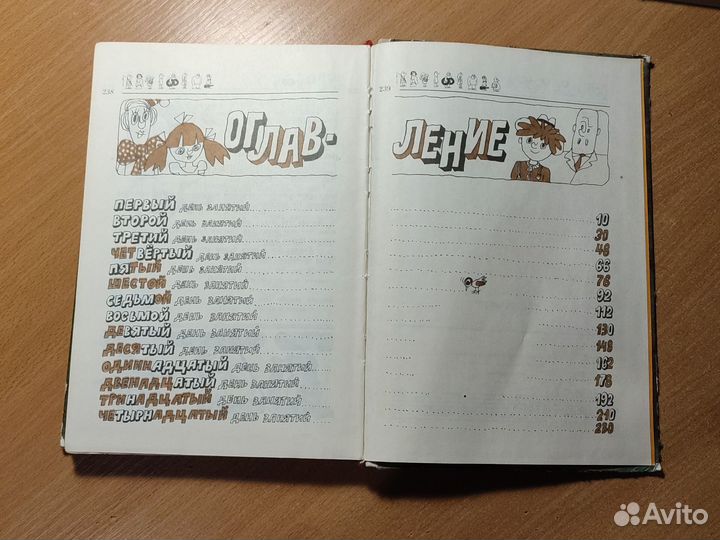 238
239
ОГЛАВ-
ЛЕНИЕ
ПЕРВЫЙ ДЕНЬ ЗАНЯТИЙ.................... 10
ВТОРОЙ ДЕНЬ ЗАНЯТИЙ.................... 30
ТРЕТИЙ ДЕНЬ ЗАНЯТИЙ.................... 48
ЧЕТВЁРТЫЙ ДЕНЬ ЗАНЯТИЙ.................... 66
ПЯТЫЙ ДЕНЬ ЗАНЯТИЙ.................... 78
ШЕСТОЙ ДЕНЬ ЗАНЯТИЙ.................... 92
СЕДЬМОЙ ДЕНЬ ЗАНЯТИЙ.................... 112
ВОСЬМОЙ ДЕНЬ ЗАНЯТИЙ.................... 130
ДЕВЯТЫЙ ДЕНЬ ЗАНЯТИЙ.................... 148
ДЕСЯТЫЙ ДЕНЬ ЗАНЯТИЙ.................... 162
ОДИННАДЦАТЫЙ ДЕНЬ ЗАНЯТИЙ.................... 178
ДВЕНАДЦАТЫЙ ДЕНЬ ЗАНЯТИЙ.................... 192
ТРИНАДЦАТЫЙ ДЕНЬ ЗАНЯТИЙ.................... 210
ЧЕТЫРНАДЦАТЫЙ ДЕНЬ ЗАНЯТИЙ.................... 230
Avito